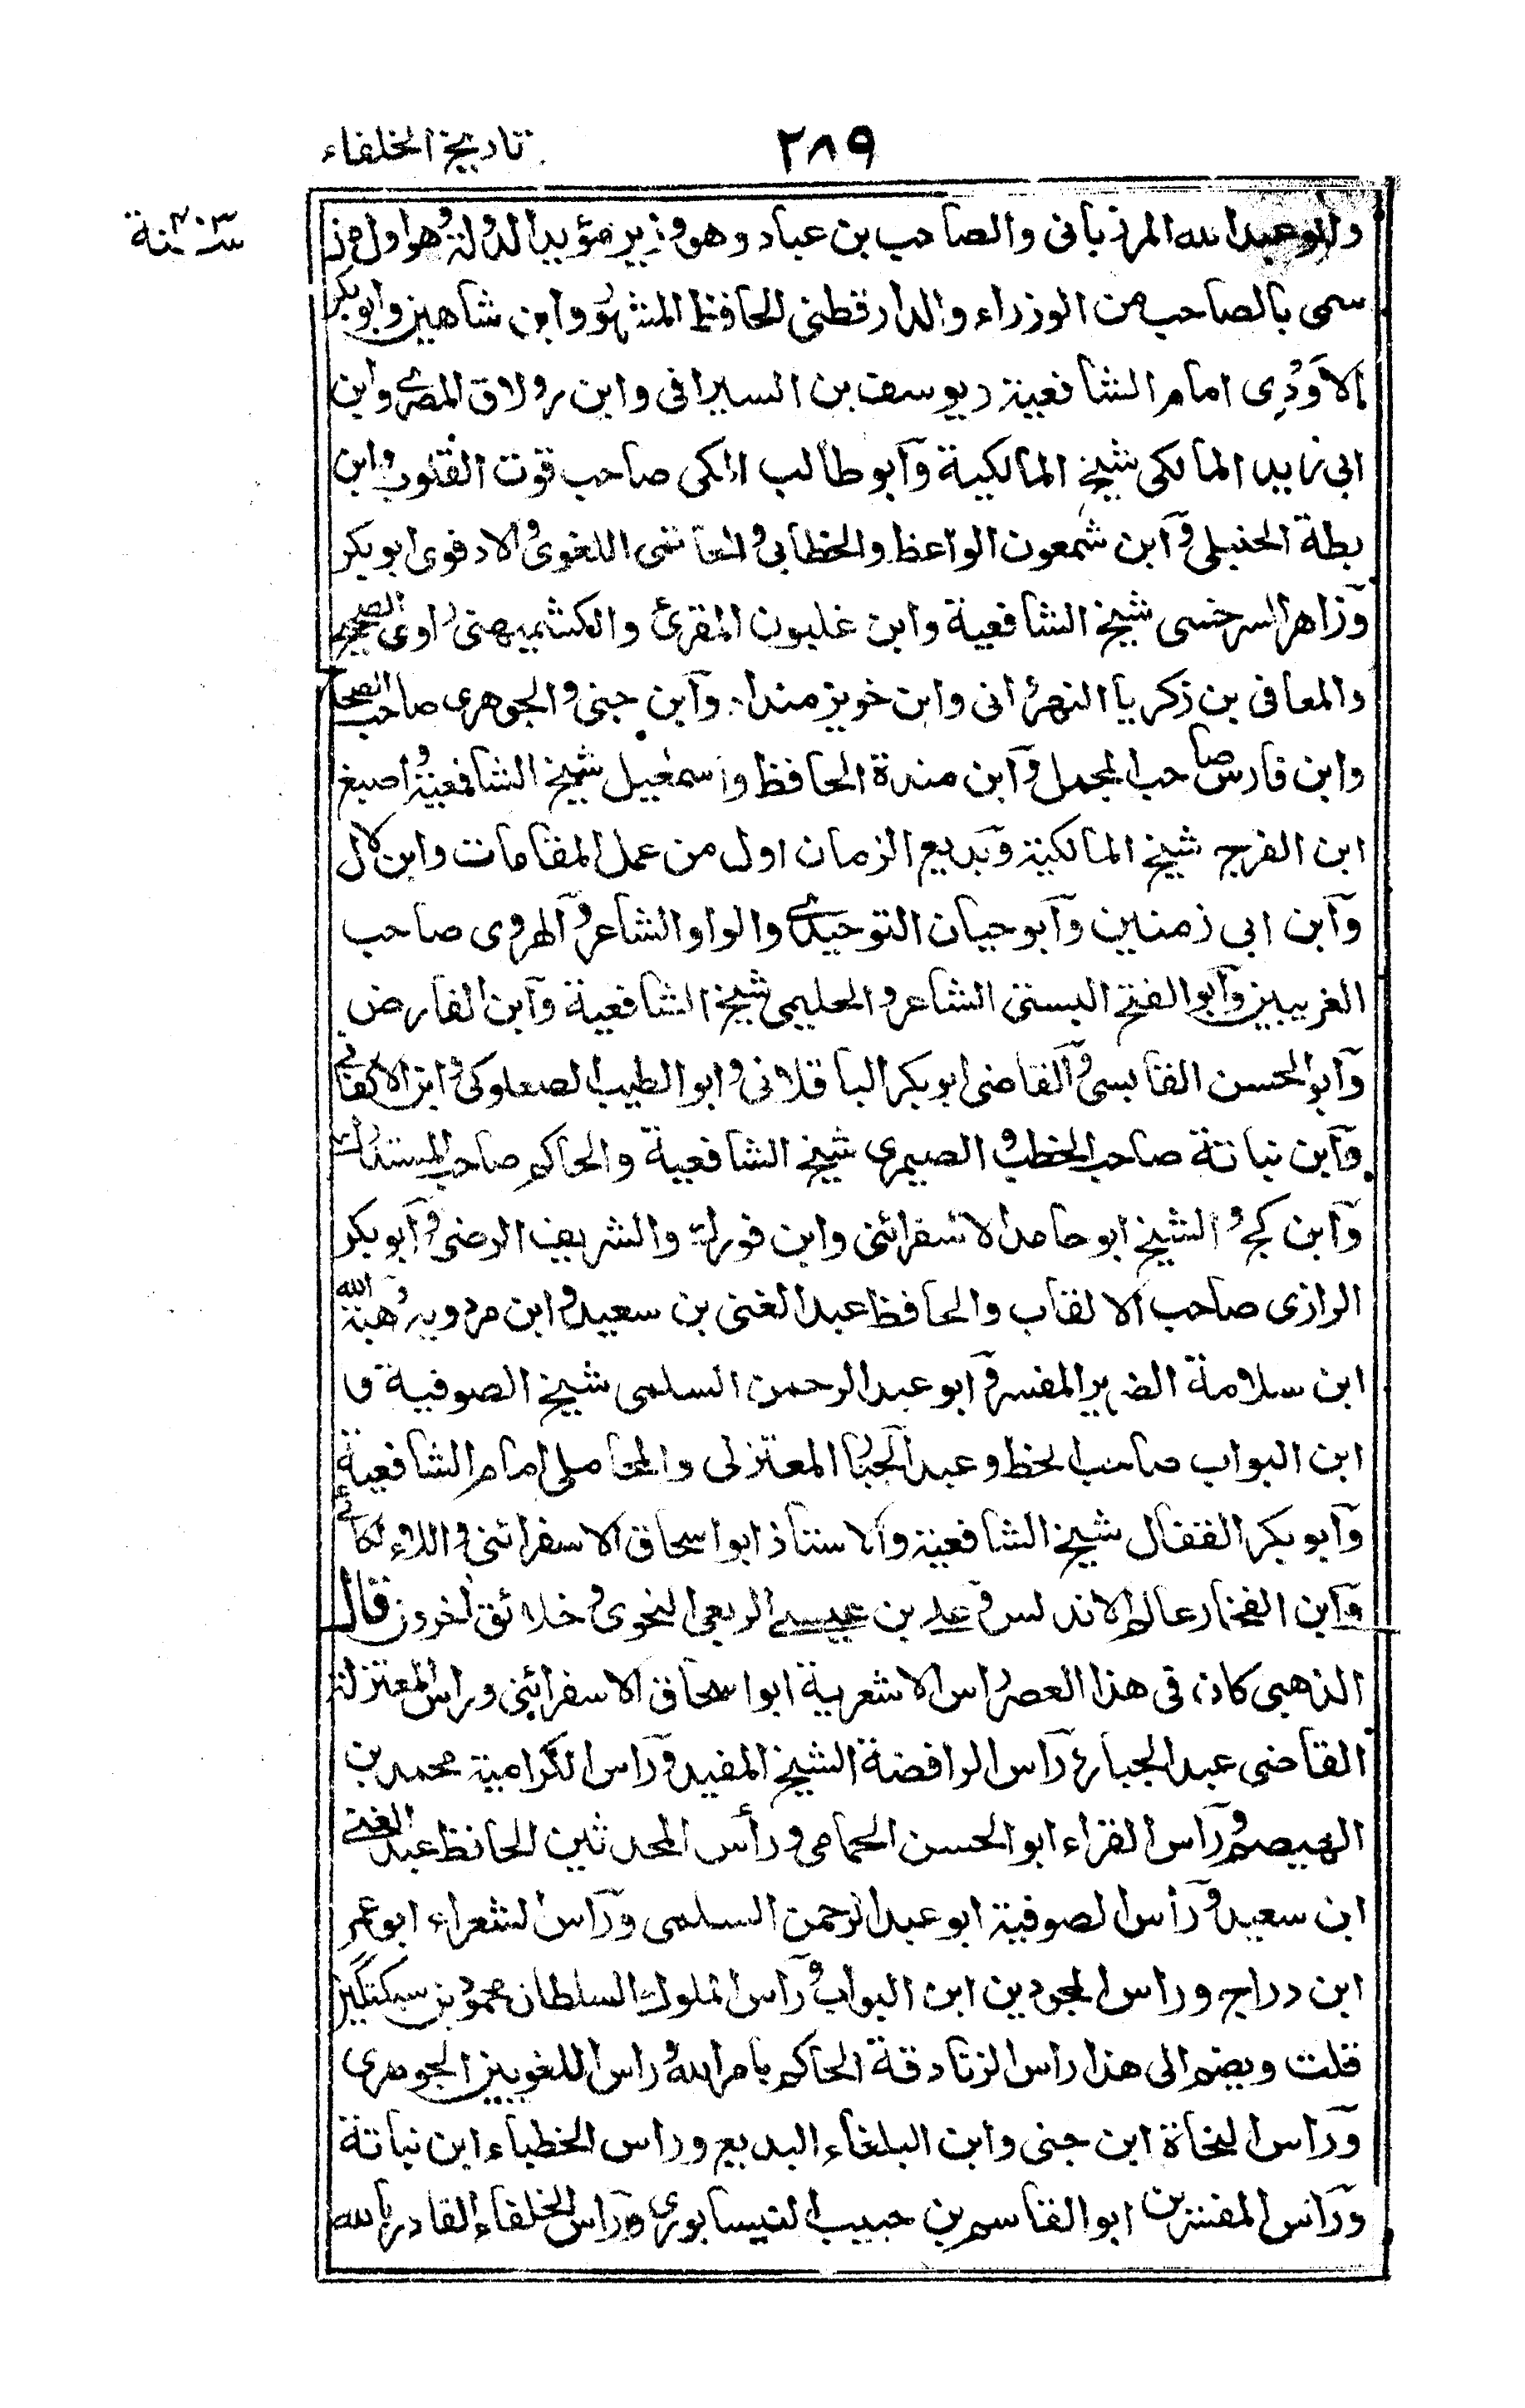 ٢٨٩
تاريخ الخلفاء
سنة ٤٠٣
وابو عبد الله المرزبانى والصاحب بن عباد وهو وزير مؤيد الدولة وهو اول من
سمى بالصاحب من الوزراء والدارقطنى الحافظ المشهور وابن شاهين وابو بكر
الاودى امام الشافعية ويوسف بن السيرافى وابن زولاق المصرى وابن
ابى زيد المالكى شيخ المالكية وابو طالب المكى صاحب قوت القلوب وابن
بطة الحنبلى وابن شمعون الواعظ والخطابى والحاتمى اللغوى والادفوى ابو بكر
وزاهر السرخسى شيخ الشافعية وابن غلبون المقرئ والكشميهنى راوى الصحيح
والمعافى بن زكريا النهروانى وابن خويز منداد وابن جنى والجوهرى صاحب الصحاح
وابن فارس صاحب المجمل وابن مندة الحافظ واسمعيل شيخ الشافعية واصبغ
ابن الفرج شيخ المالكية وبديع الزمان اول من عمل المقامات وابن لال
وابن ابى زمنين وابو حيان التوحيدى والواو الشاعر والهروى صاحب
الغريبين وابو الفتح البستى الشاعر والحليمى شيخ الشافعية وابن الفارض
وابو الحسن القابسى والقاضى ابو بكر الباقلانى وابو الطيب الصعلوكى وابن الاكفانى
وابن نباتة صاحب الخطب والصيمرى شيخ الشافعية والحاكم صاحب المستدرك
وابن كج والشيخ ابو حامد الاسفرائنى وابن فورك والشريف الرضى وابو بكر
الرازى صاحب الالقاب والحافظ عبد الغنى بن سعيد وابن مردويه وهبة الله
ابن سلامة الضرير المفسر وابو عبد الرحمن السلمى شيخ الصوفية و
ابن البواب صاحب الخط وعبد الجبار المعتزلى والمحاملى امام الشافعية
وابو بكر القفال شيخ الشافعية والاستاذ ابو اسحاق الاسفرائنى واللالكائى
وابن الفخار عالم الاندلس وعلى بن عيسى الربعى النحوى وخلائق اخرون قال
الذهبى كان فى هذا العصر راس الاشعرية ابو اسحاق الاسفرائنى وراس المعتزلة
القاضى عبد الجبار وراس الرافضة الشيخ المفيد وراس الكرامية محمد بن
الهيصم وراس القراء ابو الحسن الحمامى ورأس المحدثين الحافظ عبد الغنى
ابن سعيد ورأس الصوفية ابو عبد الرحمن السلمى وراس الشعراء ابو عمر
ابن دراج وراس المجودين ابن البواب وراس الملوك السلطان محمود بن سبكتگين
قلت ويضم الى هذا راس الزنادقة الحاكم بامر الله وراس اللغويين الجوهرى
وراس النحاة ابن جنى وابن البلغاء البديع وراس الخطباء ابن نباتة
وراس المفسرين ابو القاسم بن حبيب النيسابورى وراس الخلفاء القادر بالله